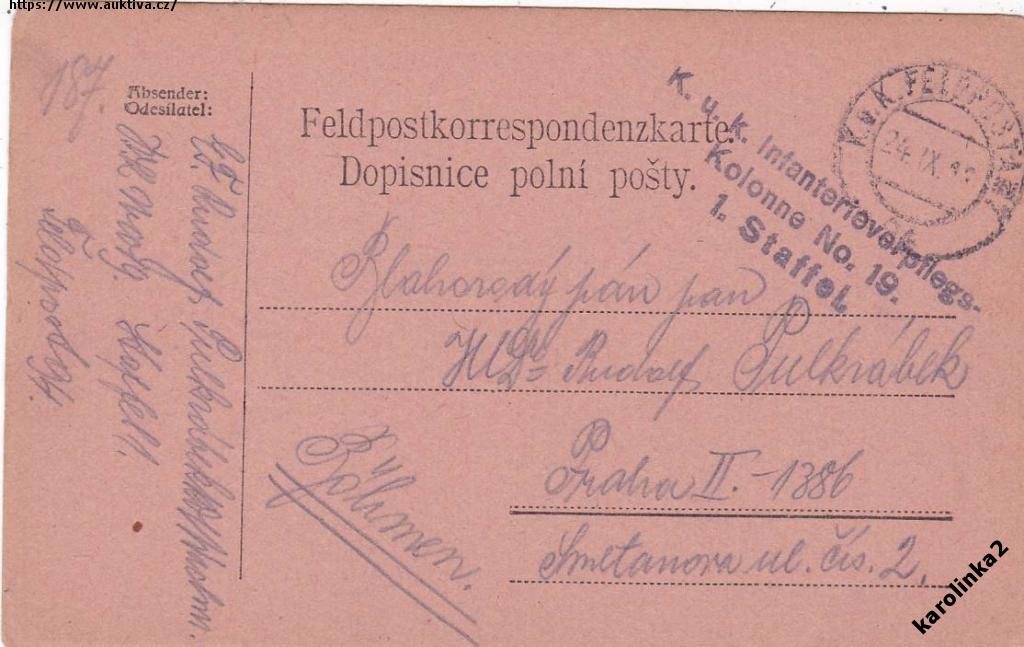 https://www.auktiva.cz/
187.
Absender:
Odesílatel:
Rudolf Pulkrábek
No 19. Staffel 1.
Feldpost 94.
Feldpostkorrespondenzkarte.
Dopisnice polní pošty.
K. u. k. Infanterieverpflegs-
Kolonne No. 19.
1. Staffel.
K.u.K. FELDPOSTAMT
24. IX.
Blahorodý pán pan
Rudolf Pulkrábek
Praha II.-1386
Smetanova ul. čís. 2.
Böhmen.
karolinka2